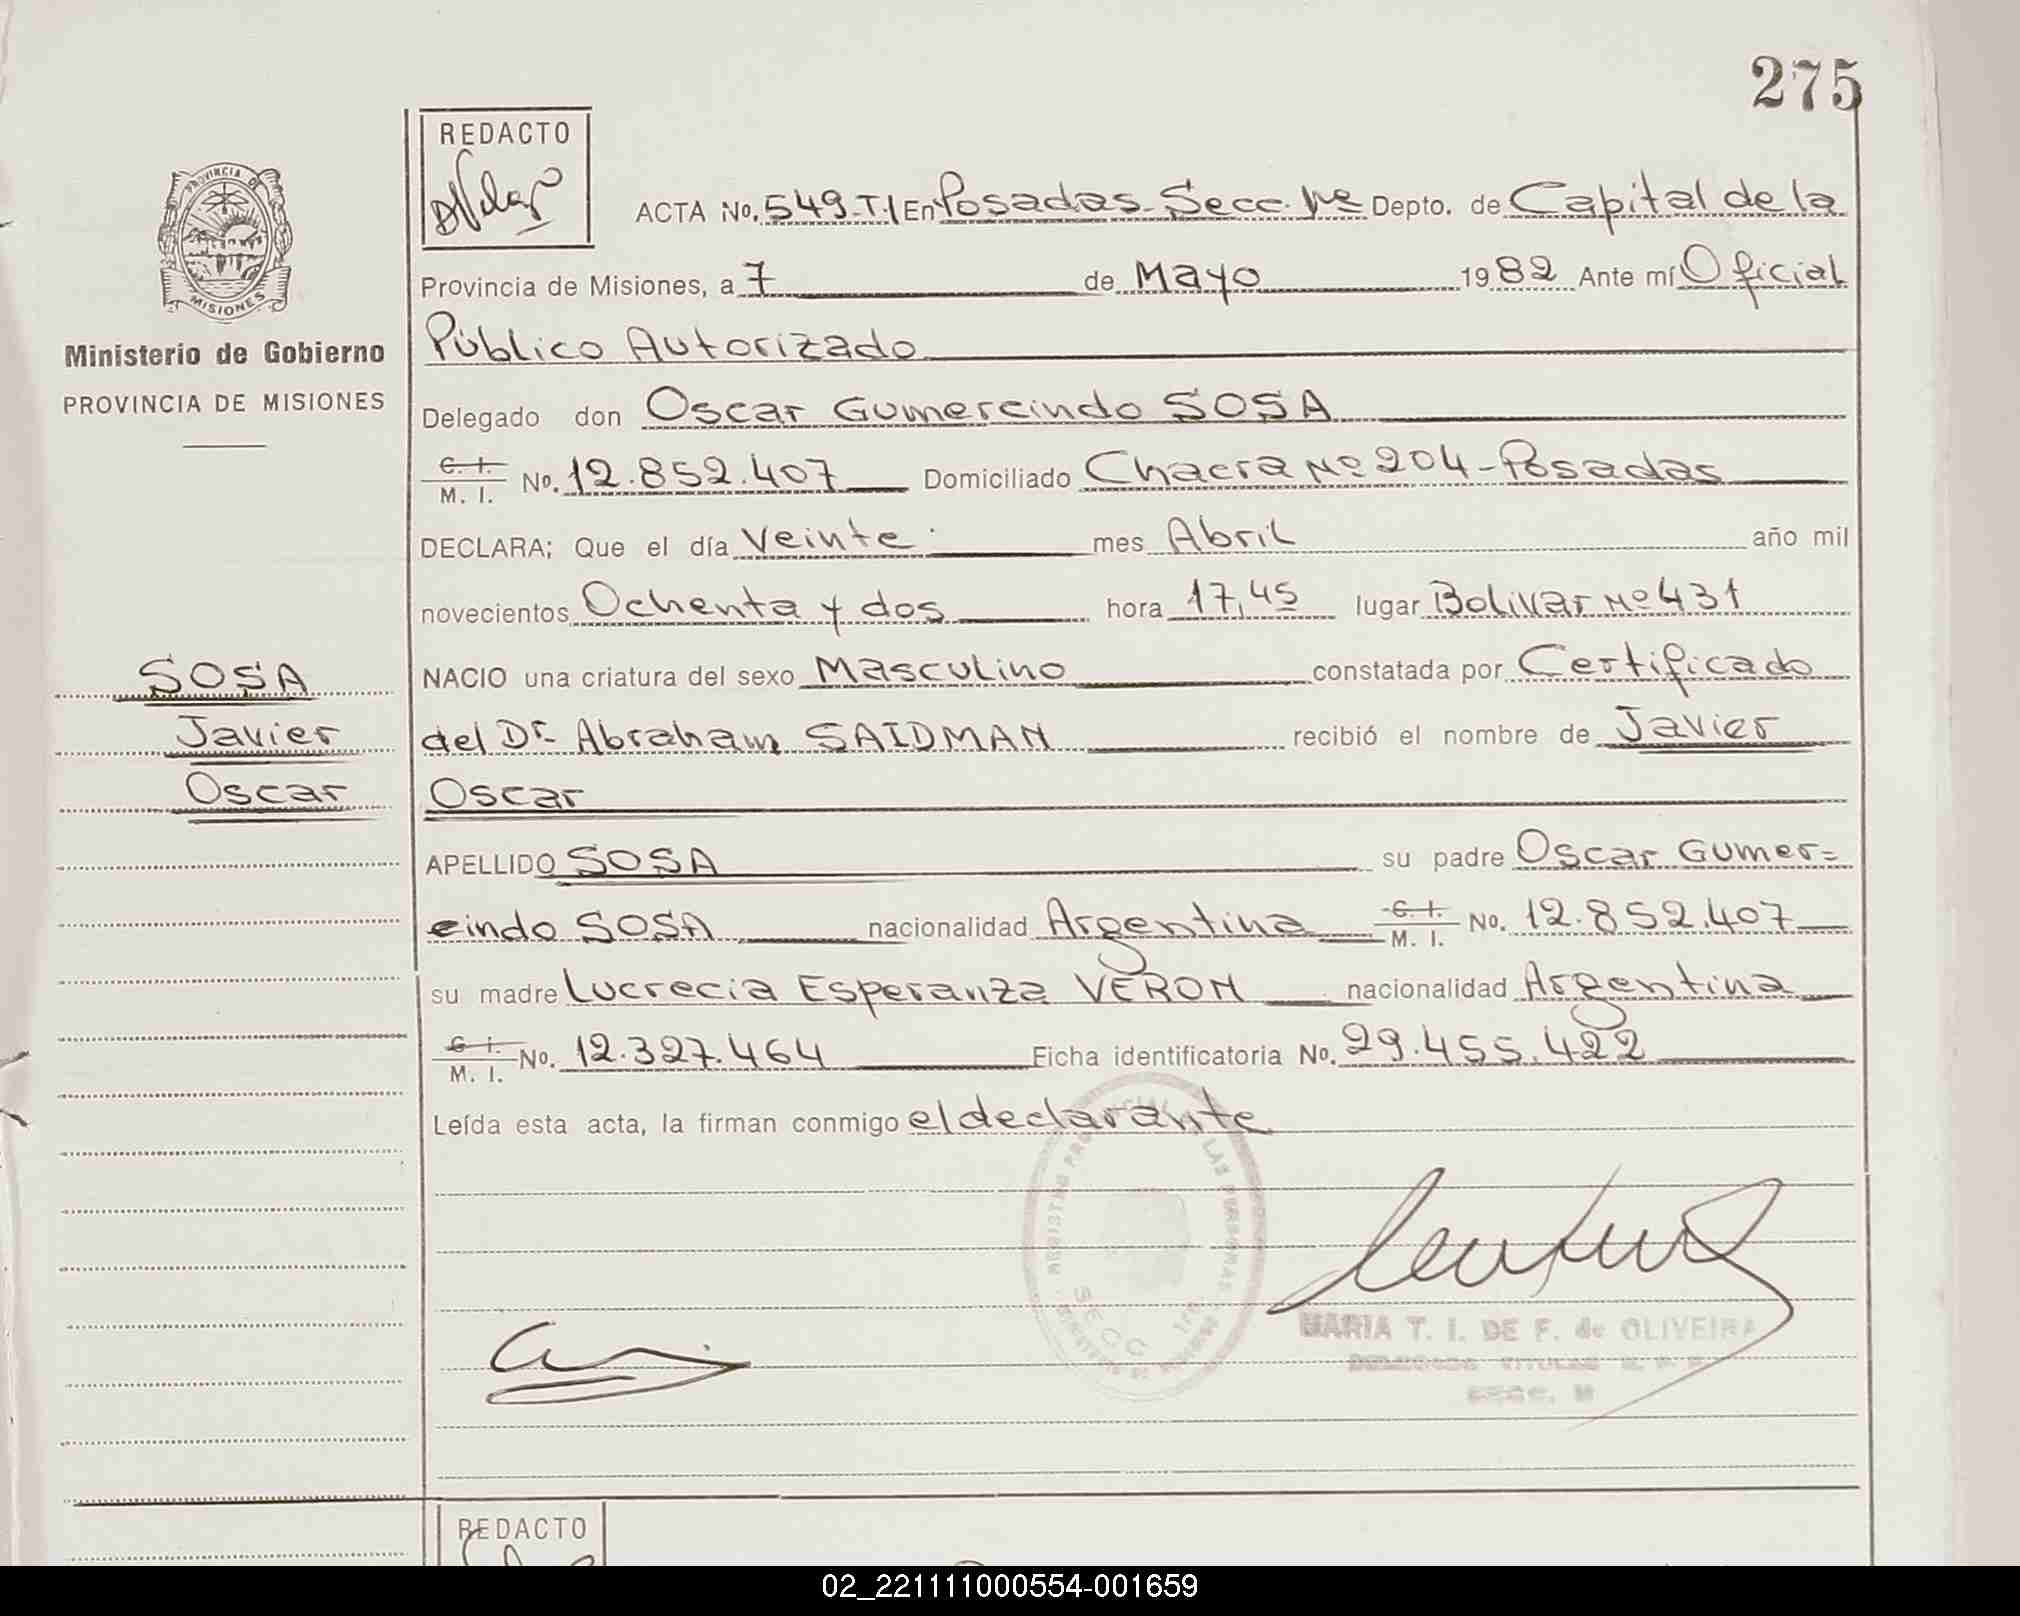 275
REDACTO
PROVINCIA DE
MISIONES
Ministerio de Gobierno
PROVINCIA DE MISIONES
ACTA No. 549-T.I En Posadas-Secc. 1ra Depto. de Capital de la
Provincia de Misiones, a 7 de Mayo 1982 Ante mí Oficial
Público Autorizado
Delegado don Oscar Gumercindo SOSA
C. I. M. I. No. 12.852.407 Domiciliado Chacra Nº 204-Posadas
DECLARA; Que el día Veinte mes Abril año mil
novecientos Ochenta y dos hora 17,45 lugar Bolivar Nº 431
NACIO una criatura del sexo Masculino constatada por Certificado
del Dr. Abraham SAIDMAN recibió el nombre de Javier
Oscar
SOSA
Javier
Oscar
APELLIDO SOSA su padre Oscar Gumer=
cindo SOSA nacionalidad Argentina C. I. M. I. No. 12.852.407
su madre Lucrecia Esperanza VERON nacionalidad Argentina
C. I. M. I. No. 12.327.464 Ficha identificatoria No. 29.455.422
Leída esta acta, la firman conmigo el declarante
LAS PERSONAS
SECC 1ra
MARIA T. I. DE F. de OLIVEIRA
REDACTO
02_221111000554-001659